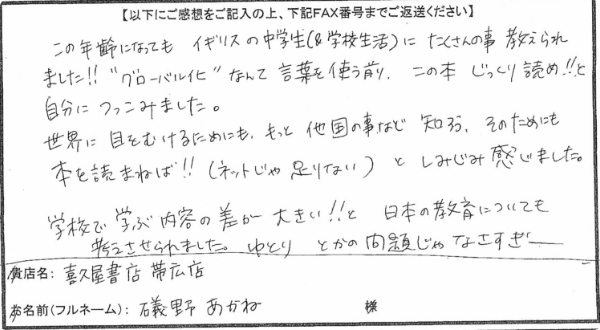 【以下にご感想をご記入の上、下記FAX番号までご返送ください】
この年齢になっても イギリスの中学生(&学校生活)に たくさんの事 教えられ
ました!! "グローバル化" なんて 言葉を使う前に、この本 じっくり読め!!と
自分に つっこみました。
世界に 目をむけるためにも、もっと 他国の事など 知ろう、そのためにも
本を読まねば!! (ネットじゃ 足りない) と しみじみ 感じました。
学校で 学ぶ 内容の差が 大きい!!と 日本の教育についても
考えさせられました。ゆとり とかの問題じゃ なさすぎー
貴店名: 喜久屋書店 帯広店
お名前(フルネーム): 礒野 あかね 様